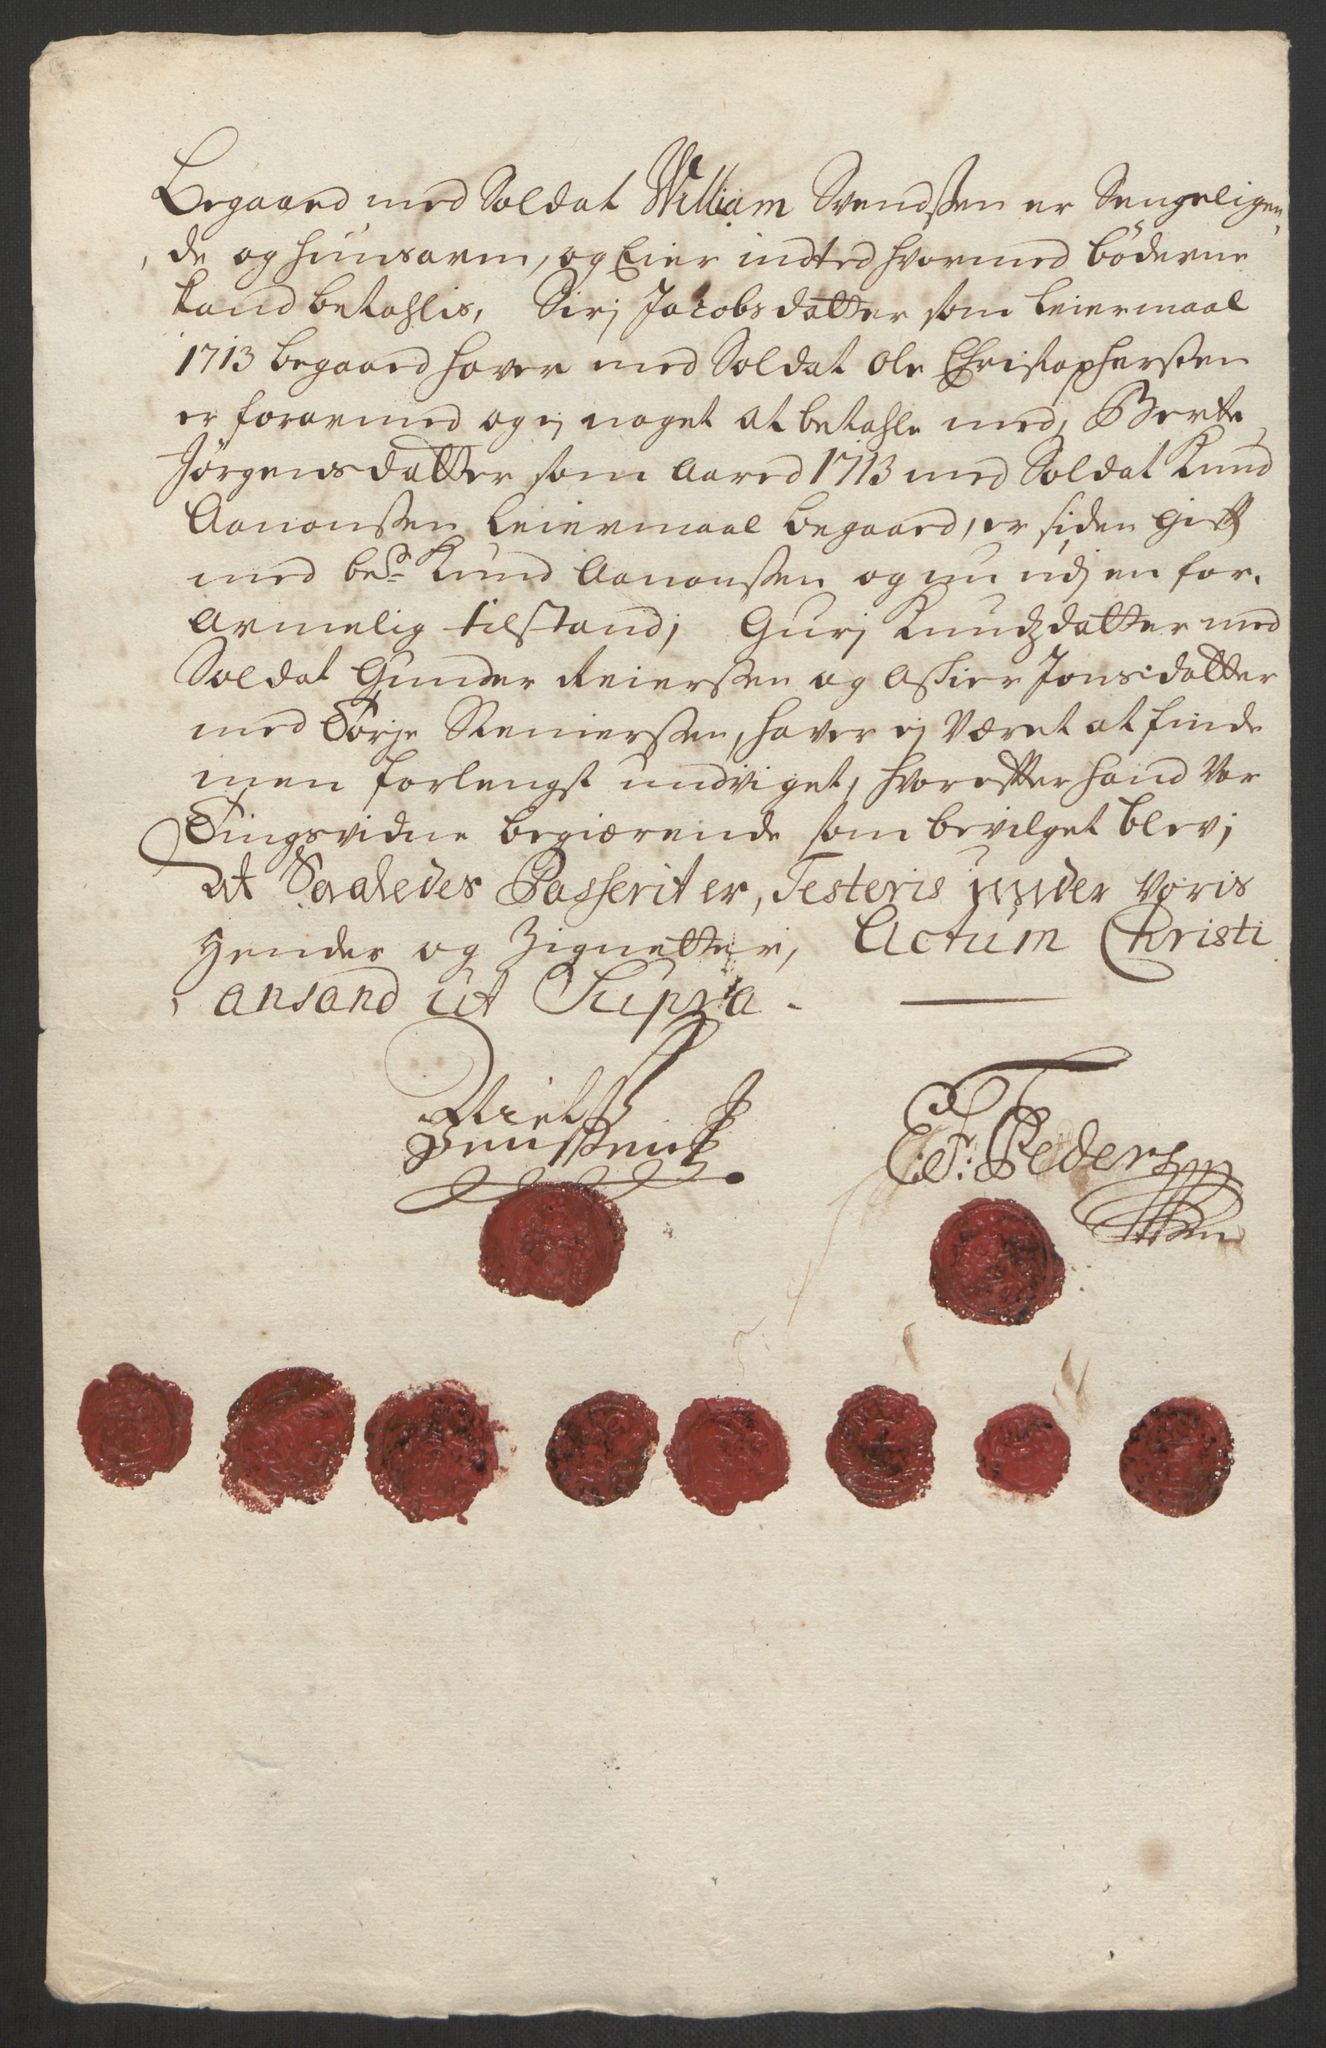 Begaaed med Soldat William Svendssen er Sengeligen
de og huusarm, og Eier indted hvormed böderne
kand betahlis, Sirj Jacobsdatter som Leiermaal
1713 begaaed haver med Soldat Ole Christophersen
er forarmed og ej noget at betahle med, Berte
Jørgensdatter som Aared 1713 med Soldat Knud
Aanonssen Leiermaal begaaed, er siden gift
med bem Knud Aanonssen og nu udj en for-
Armelig tilstand, Gurj Knudzdatter med
Soldat Gunder Reierssen og Assier Jonsdatter
med Torje Renierssen, haver ej Været at finde
men forlengst undviget, hvorefter hand Vor
Tingsvidne begiærende som bevilget blev;
At Saaledes Passerit er, Testeris under Voris
Hender og Zignetter, Actum Christi
ansand ut Supra.
Niels
Jenssen
E: P: Pedersen